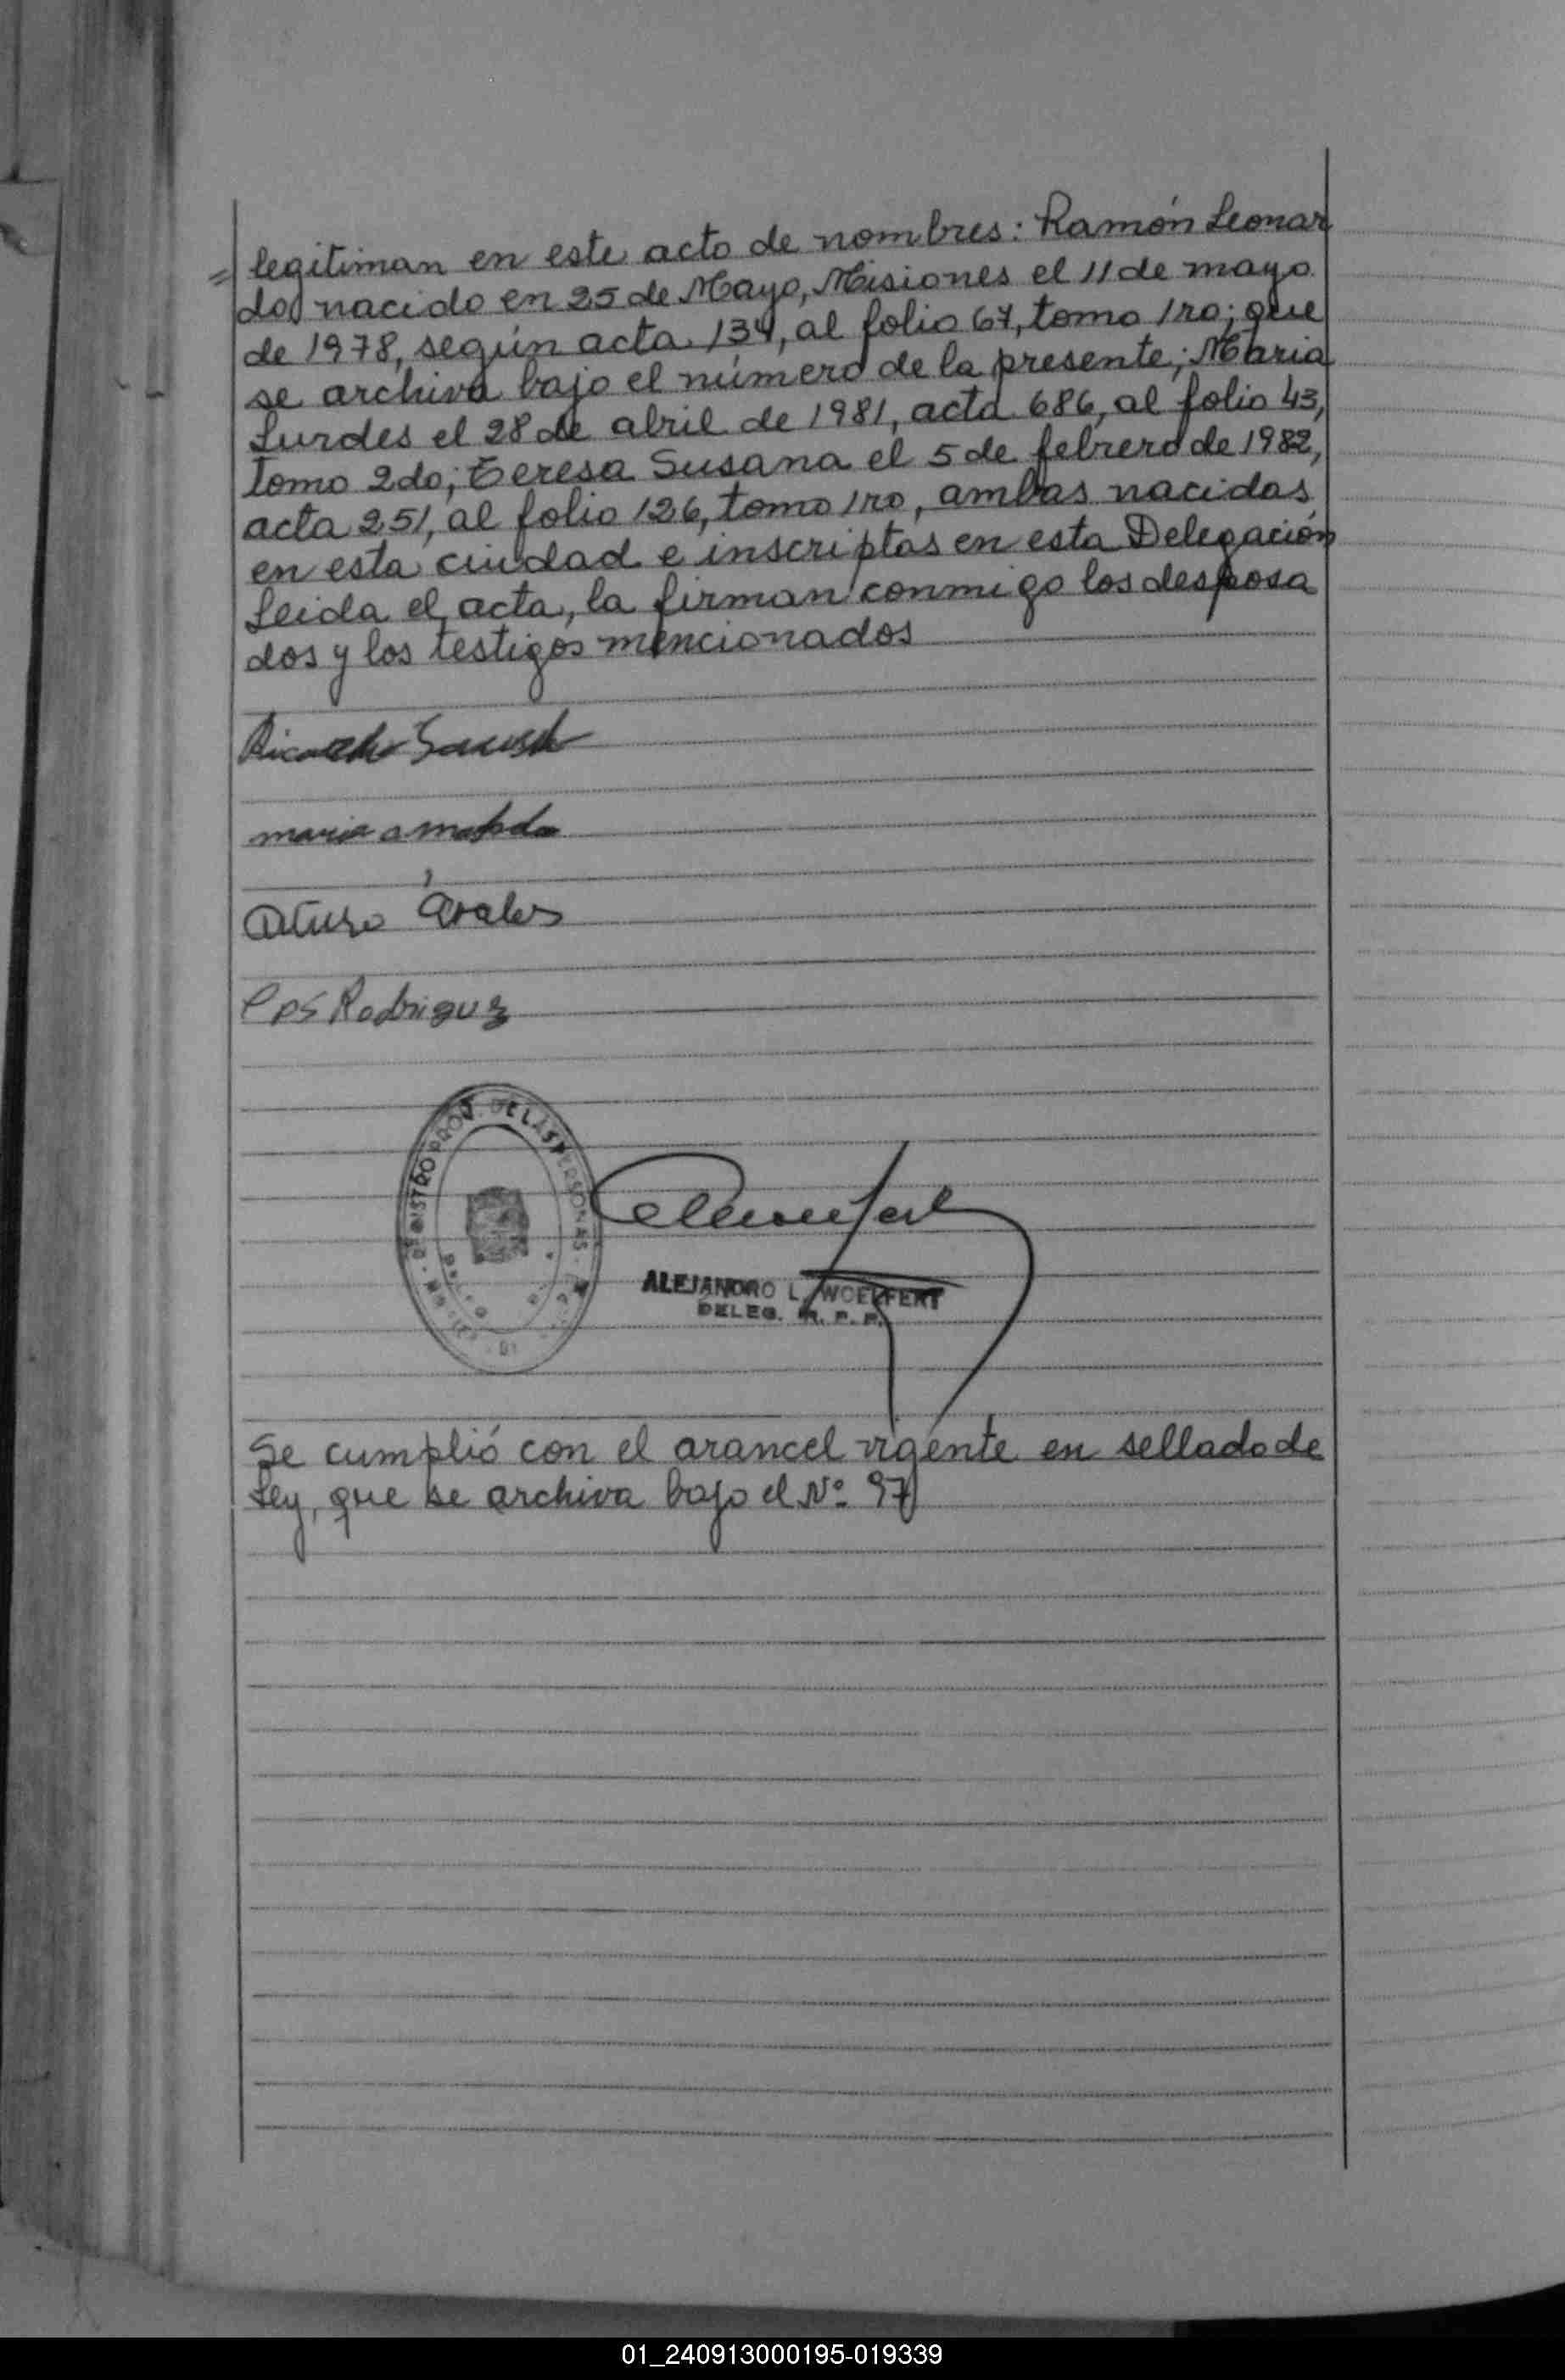 = legitiman en este acto de nombres: Ramón Leonar
do, nacido en 25 de Mayo, Misiones el 11 de mayo
de 1978, según acta 134, al folio 67, tomo 1ro; que
se archiva bajo el número de la presente; Maria
Lurdes el 28 de abril de 1981, acta 686, al folio 43,
tomo 2do; Teresa Susana el 5 de febrero de 1982,
acta 251, al folio 126, tomo 1ro, ambas nacidas
en esta ciudad e inscriptas en esta Delegación
Leida el acta, la firman conmigo los desposa
dos y los testigos mencionados
Ricardo
maria
Arturo
Rodriguz
REGISTRO PROV. DE LAS PERSONAS
ALEJANDRO L. WOELFERT
DELEG. R. P. P.
Se cumplió con el arancel vigente en sellado de
Ley, que se archiva bajo el Nº 97
01_240913000195-019339